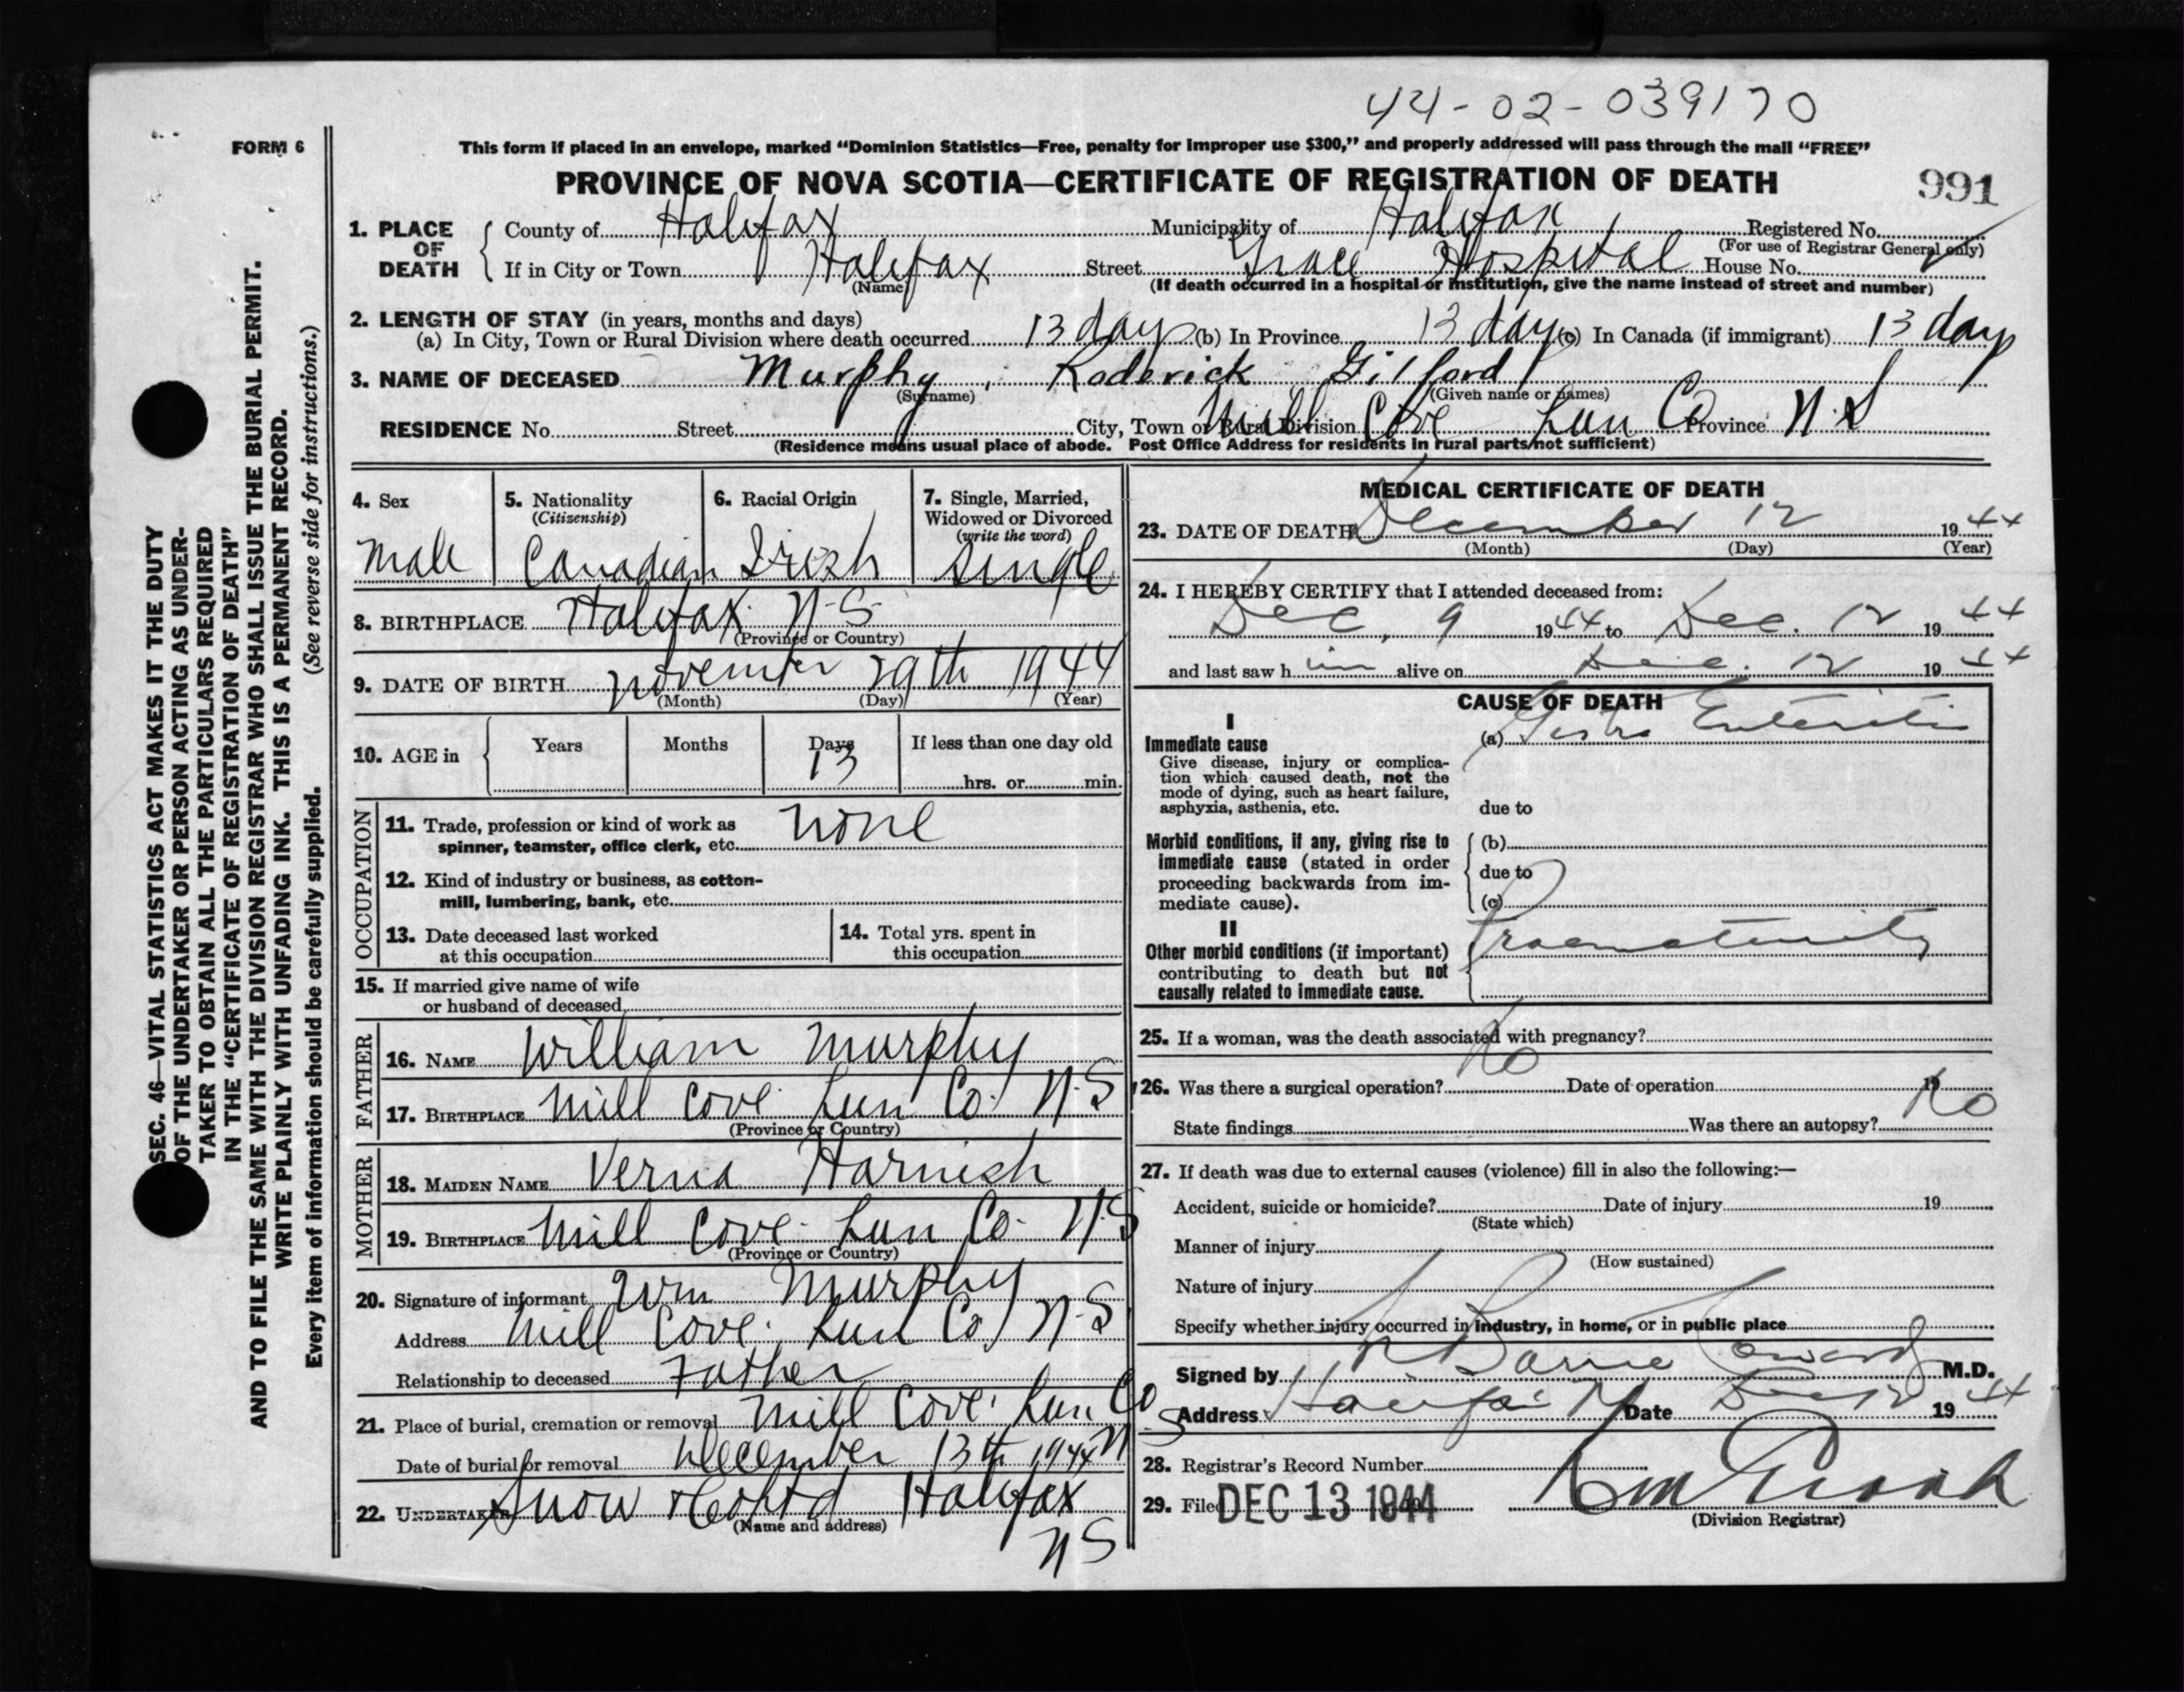 44-02-039170
FORM 6
This form if placed in an envelope, marked “Dominion Statistics—Free, penalty for improper use $300,” and properly addressed will pass through the mail “FREE”
PROVINCE OF NOVA SCOTIA—CERTIFICATE OF REGISTRATION OF DEATH 991
1. PLACE OF DEATH
County of Halifax Municipality of Halifax Registered No.
(For use of Registrar General only)
If in City or Town Halifax Street Grace Hospital House No.
(Name) (If death occurred in a hospital or institution, give the name instead of street and number)
2. LENGTH OF STAY (in years, months and days)
(a) In City, Town or Rural Division where death occurred 13 days (b) In Province 13 days (c) In Canada (if immigrant) 13 days
3. NAME OF DECEASED Murphy, Roderick Gilford
(Surname) (Given name or names)
RESIDENCE No. Street City, Town or Rural Division Mill Cove Lun Co Province N.S
(Residence means usual place of abode. Post Office Address for residents in rural parts not sufficient)
4. Sex
Male
5. Nationality
(Citizenship)
Canadian
6. Racial Origin
Irish
7. Single, Married,
Widowed or Divorced
(write the word)
Single
8. BIRTHPLACE Halifax N-S
(Province or Country)
9. DATE OF BIRTH November 29th 1944
(Month) (Day) (Year)
10. AGE in Years Months Days If less than one day old
13 hrs. or min.
OCCUPATION
11. Trade, profession or kind of work as
spinner, teamster, office clerk, etc. none
12. Kind of industry or business, as cotton-
mill, lumbering, bank, etc.
13. Date deceased last worked
at this occupation
14. Total yrs. spent in
this occupation
15. If married give name of wife
or husband of deceased
FATHER
16. NAME William Murphy
17. BIRTHPLACE Mill Cove Lun Co. N.S
(Province or Country)
MOTHER
18. MAIDEN NAME Verna Harnish
19. BIRTHPLACE Mill Cove. Lun Co. N.S
(Province or Country)
20. Signature of informant Wm Murphy
Address Mill Cove. Lun Co N-S
Relationship to deceased Father
21. Place of burial, cremation or removal Mill Cove Lun Co
N.S
Date of burial or removal December 13th 1944
22. UNDERTAKER Snow & Co Ltd Halifax
(Name and address)
NS
MEDICAL CERTIFICATE OF DEATH
23. DATE OF DEATH December 12 1944
(Month) (Day) (Year)
24. I HEREBY CERTIFY that I attended deceased from:
Dec. 9 1944 to Dec. 12 1944
and last saw him alive on Dec. 12 1944
CAUSE OF DEATH
I
Immediate cause
Give disease, injury or complica-
tion which caused death, not the
mode of dying, such as heart failure,
asphyxia, asthenia, etc.
(a) Gastro Enteritis
due to
Morbid conditions, if any, giving rise to
immediate cause (stated in order
proceeding backwards from im-
mediate cause).
(b)
due to
(c)
II
Other morbid conditions (if important)
contributing to death but not
causally related to immediate cause.
Praematurity
25. If a woman, was the death associated with pregnancy?
26. Was there a surgical operation? No Date of operation 19
State findings Was there an autopsy? No
27. If death was due to external causes (violence) fill in also the following:—
Accident, suicide or homicide? Date of injury 19
(State which)
Manner of injury
(How sustained)
Nature of injury
Specify whether injury occurred in industry, in home, or in public place
Signed by N Barrie Coward M.D.
Address Halifax NS Date Dec 12 1944
28. Registrar's Record Number
29. Filed DEC 13 1944
(Division Registrar)
SEC. 46—VITAL STATISTICS ACT MAKES IT THE DUTY
OF THE UNDERTAKER OR PERSON ACTING AS UNDER-
TAKER TO OBTAIN ALL THE PARTICULARS REQUIRED
IN THE “CERTIFICATE OF REGISTRATION OF DEATH”
AND TO FILE THE SAME WITH THE DIVISION REGISTRAR WHO SHALL ISSUE THE BURIAL PERMIT.
WRITE PLAINLY WITH UNFADING INK. THIS IS A PERMANENT RECORD.
Every item of information should be carefully supplied. (See reverse side for instructions.)